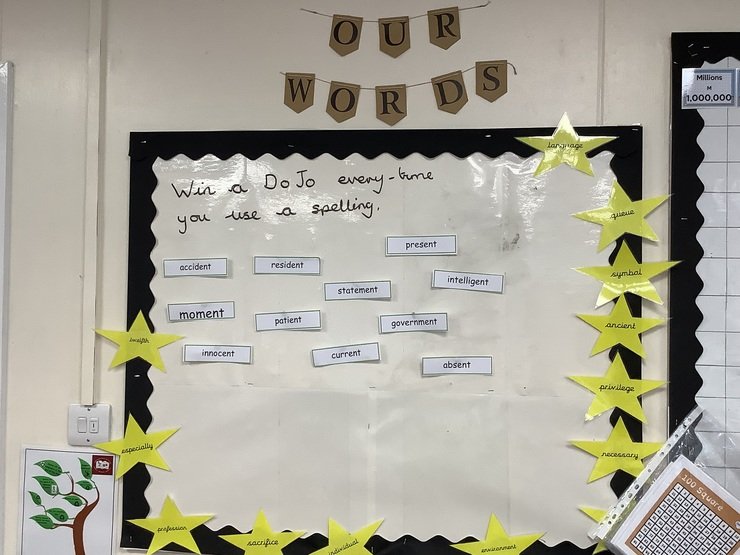 OUR
WORDS
Millions
M
1,000,000
Win a DoJo every-time
you use a spelling.
present
accident
resident
intelligent
statement
moment
patient
government
innocent
current
absent
language
queue
symbol
ancient
privilege
necessary
twelfth
especially
profession
sacrifice
individual
environment
100 Square